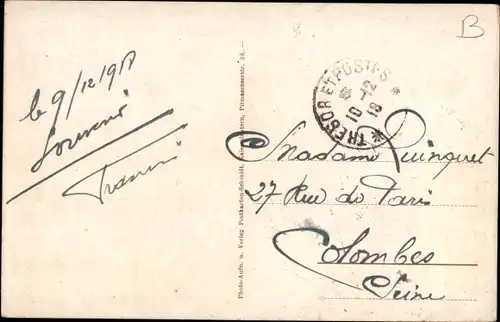 le 9/12/1918
Souvenir
B
TRESOR ET POSTES
10-12
18
Madame Quinquet
27 Rue de Paris
Colombes
Seine
Photo-Aufn. u. Verlag Postkarten-Schmidt, Kaiserslautern, Pirmasenserstr. 26. –